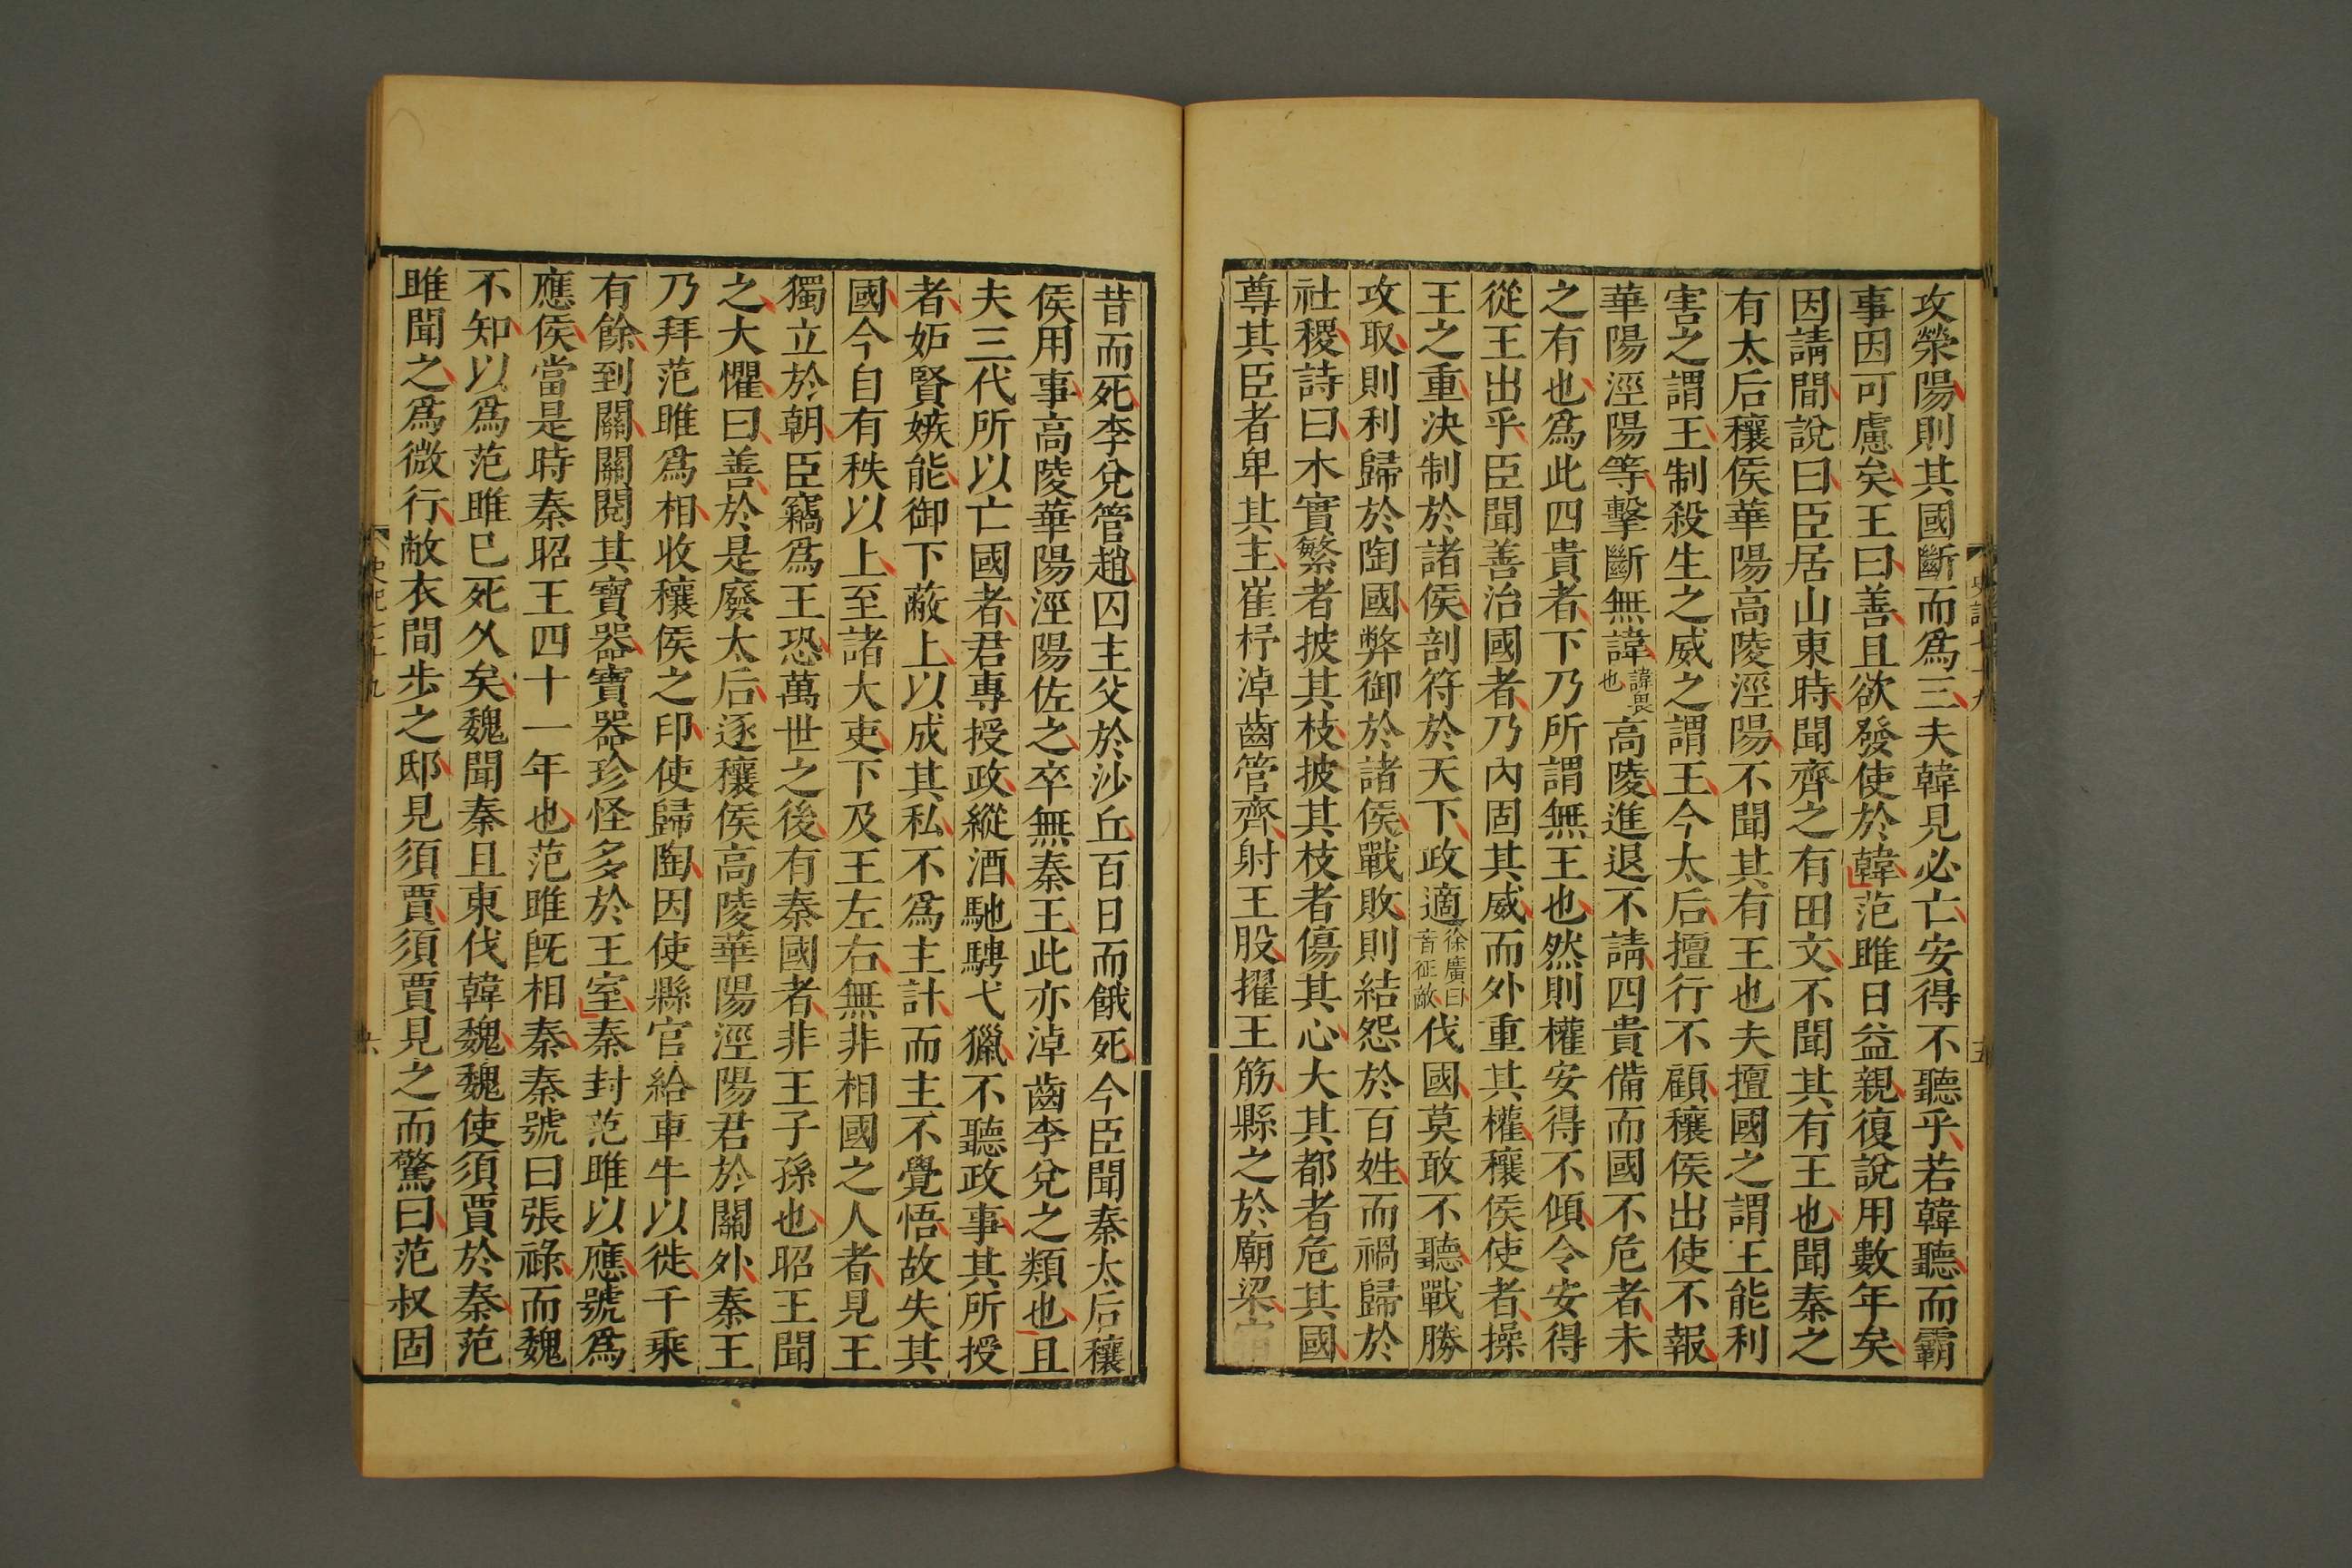 攻滎陽則其國斷而爲三夫韓見必亡安得不聽乎若韓聽而霸
事因可慮矣王曰善且欲發使於韓范雎日益親復說用數年矣
因請間說曰臣居山東時聞齊之有田文不聞其有王也聞秦之
有太后穰侯華陽高陵涇陽不聞其有王也夫擅國之謂王能利
害之謂王制殺生之威之謂王今太后擅行不顧穰侯出使不報
華陽涇陽等擊斷無諱諱畏也高陵進退不請四貴備而國不危者未
之有也爲此四貴者下乃所謂無王也然則權安得不傾令安得
從王出乎臣聞善治國者乃內固其威而外重其權穰侯使者操
王之重決制於諸侯剖符於天下政適徐廣曰音征敵伐國莫敢不聽戰勝
攻取則利歸於陶國弊御於諸侯戰敗則結怨於百姓而禍歸於
社稷詩曰木實繁者披其枝披其枝者傷其心大其都者危其國
尊其臣者卑其主崔杼淖齒管齊射王股擢王筋縣之於廟梁宿
昔而死李兌管趙囚主父於沙丘百日而餓死今臣聞秦太后穰
侯用事高陵華陽涇陽佐之卒無秦王此亦淖齒李兌之類也且
夫三代所以亡國者君專授政縱酒馳騁弋獵不聽政事其所授
者妬賢嫉能御下蔽上以成其私不爲主計而主不覺悟故失其
國今自有秩以上至諸大吏下及王左右無非相國之人者見王
獨立於朝臣竊爲王恐萬世之後有秦國者非王子孫也昭王聞
之大懼曰善於是廢太后逐穰侯高陵華陽涇陽君於關外秦王
乃拜范雎爲相收穰侯之印使歸陶因使縣官給車牛以徙千乘
有餘到關關閱其寶器寶器珍怪多於王室秦封范雎以應號爲
應侯當是時秦昭王四十一年也范雎旣相秦秦號曰張祿而魏
不知以爲范雎已死久矣魏聞秦且東伐韓魏魏使須賈於秦范
雎聞之爲微行敝衣間步之邸見須賈須賈見之而驚曰范叔固
史記七十九
五
史記七十九
六